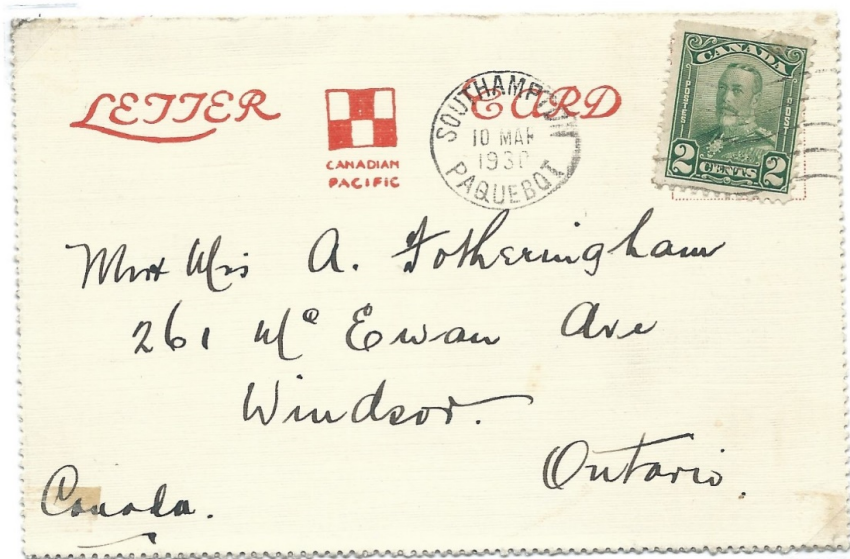 LETTER CARD
CANADIAN
PACIFIC
SOUTHAMPTON
10 MAR
1930
PAQUEBOT
CANADA
POSTES POST
2 CENTS 2
Mr & Mrs A. Fotheringham
261 Mc Ewan Ave
Windsor.
Ontario.
Canada.